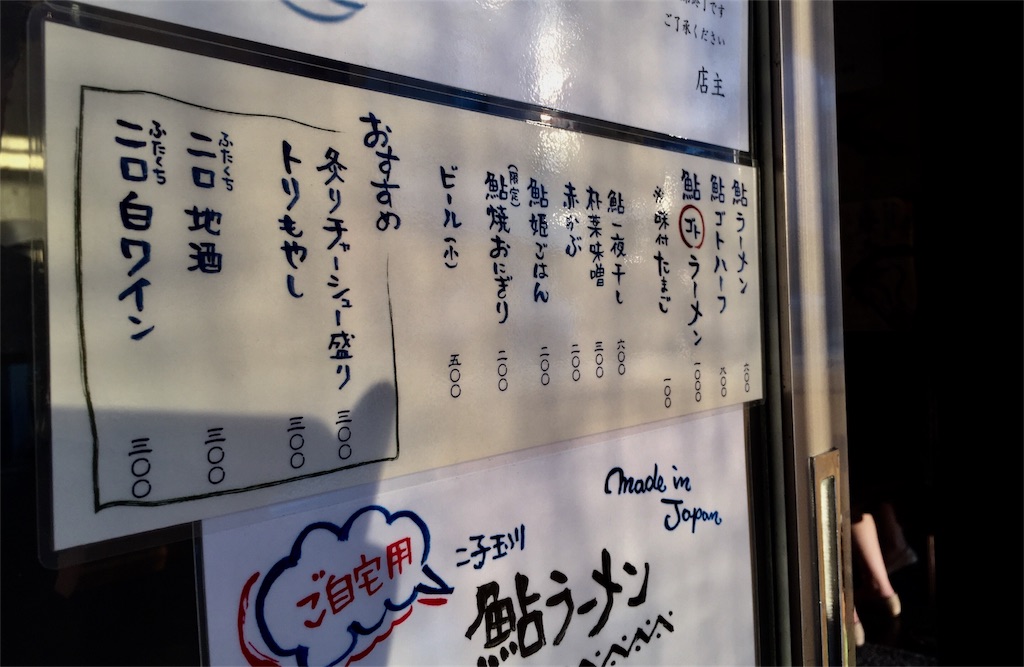 終了です
ご了承ください
店主
鮎ラーメン 六〇〇
鮎ゴトハーフ 八〇〇
鮎ゴトラーメン 一〇〇〇
味付たまご 一〇〇
鮎一夜干し 六〇〇
朴葉味噌 三〇〇
赤かぶ 二〇〇
鮎姫ごはん 二〇〇
(限定)
鮎焼おにぎり 二〇〇
ビール(小) 五〇〇
おすすめ
炙りチャーシュー盛り 三〇〇
トリもやし 三〇〇
ふたくち
二口地酒 三〇〇
ふたくち
二口白ワイン 三〇〇
Made in
Japan
ご自宅用
二子玉川
鮎ラーメン